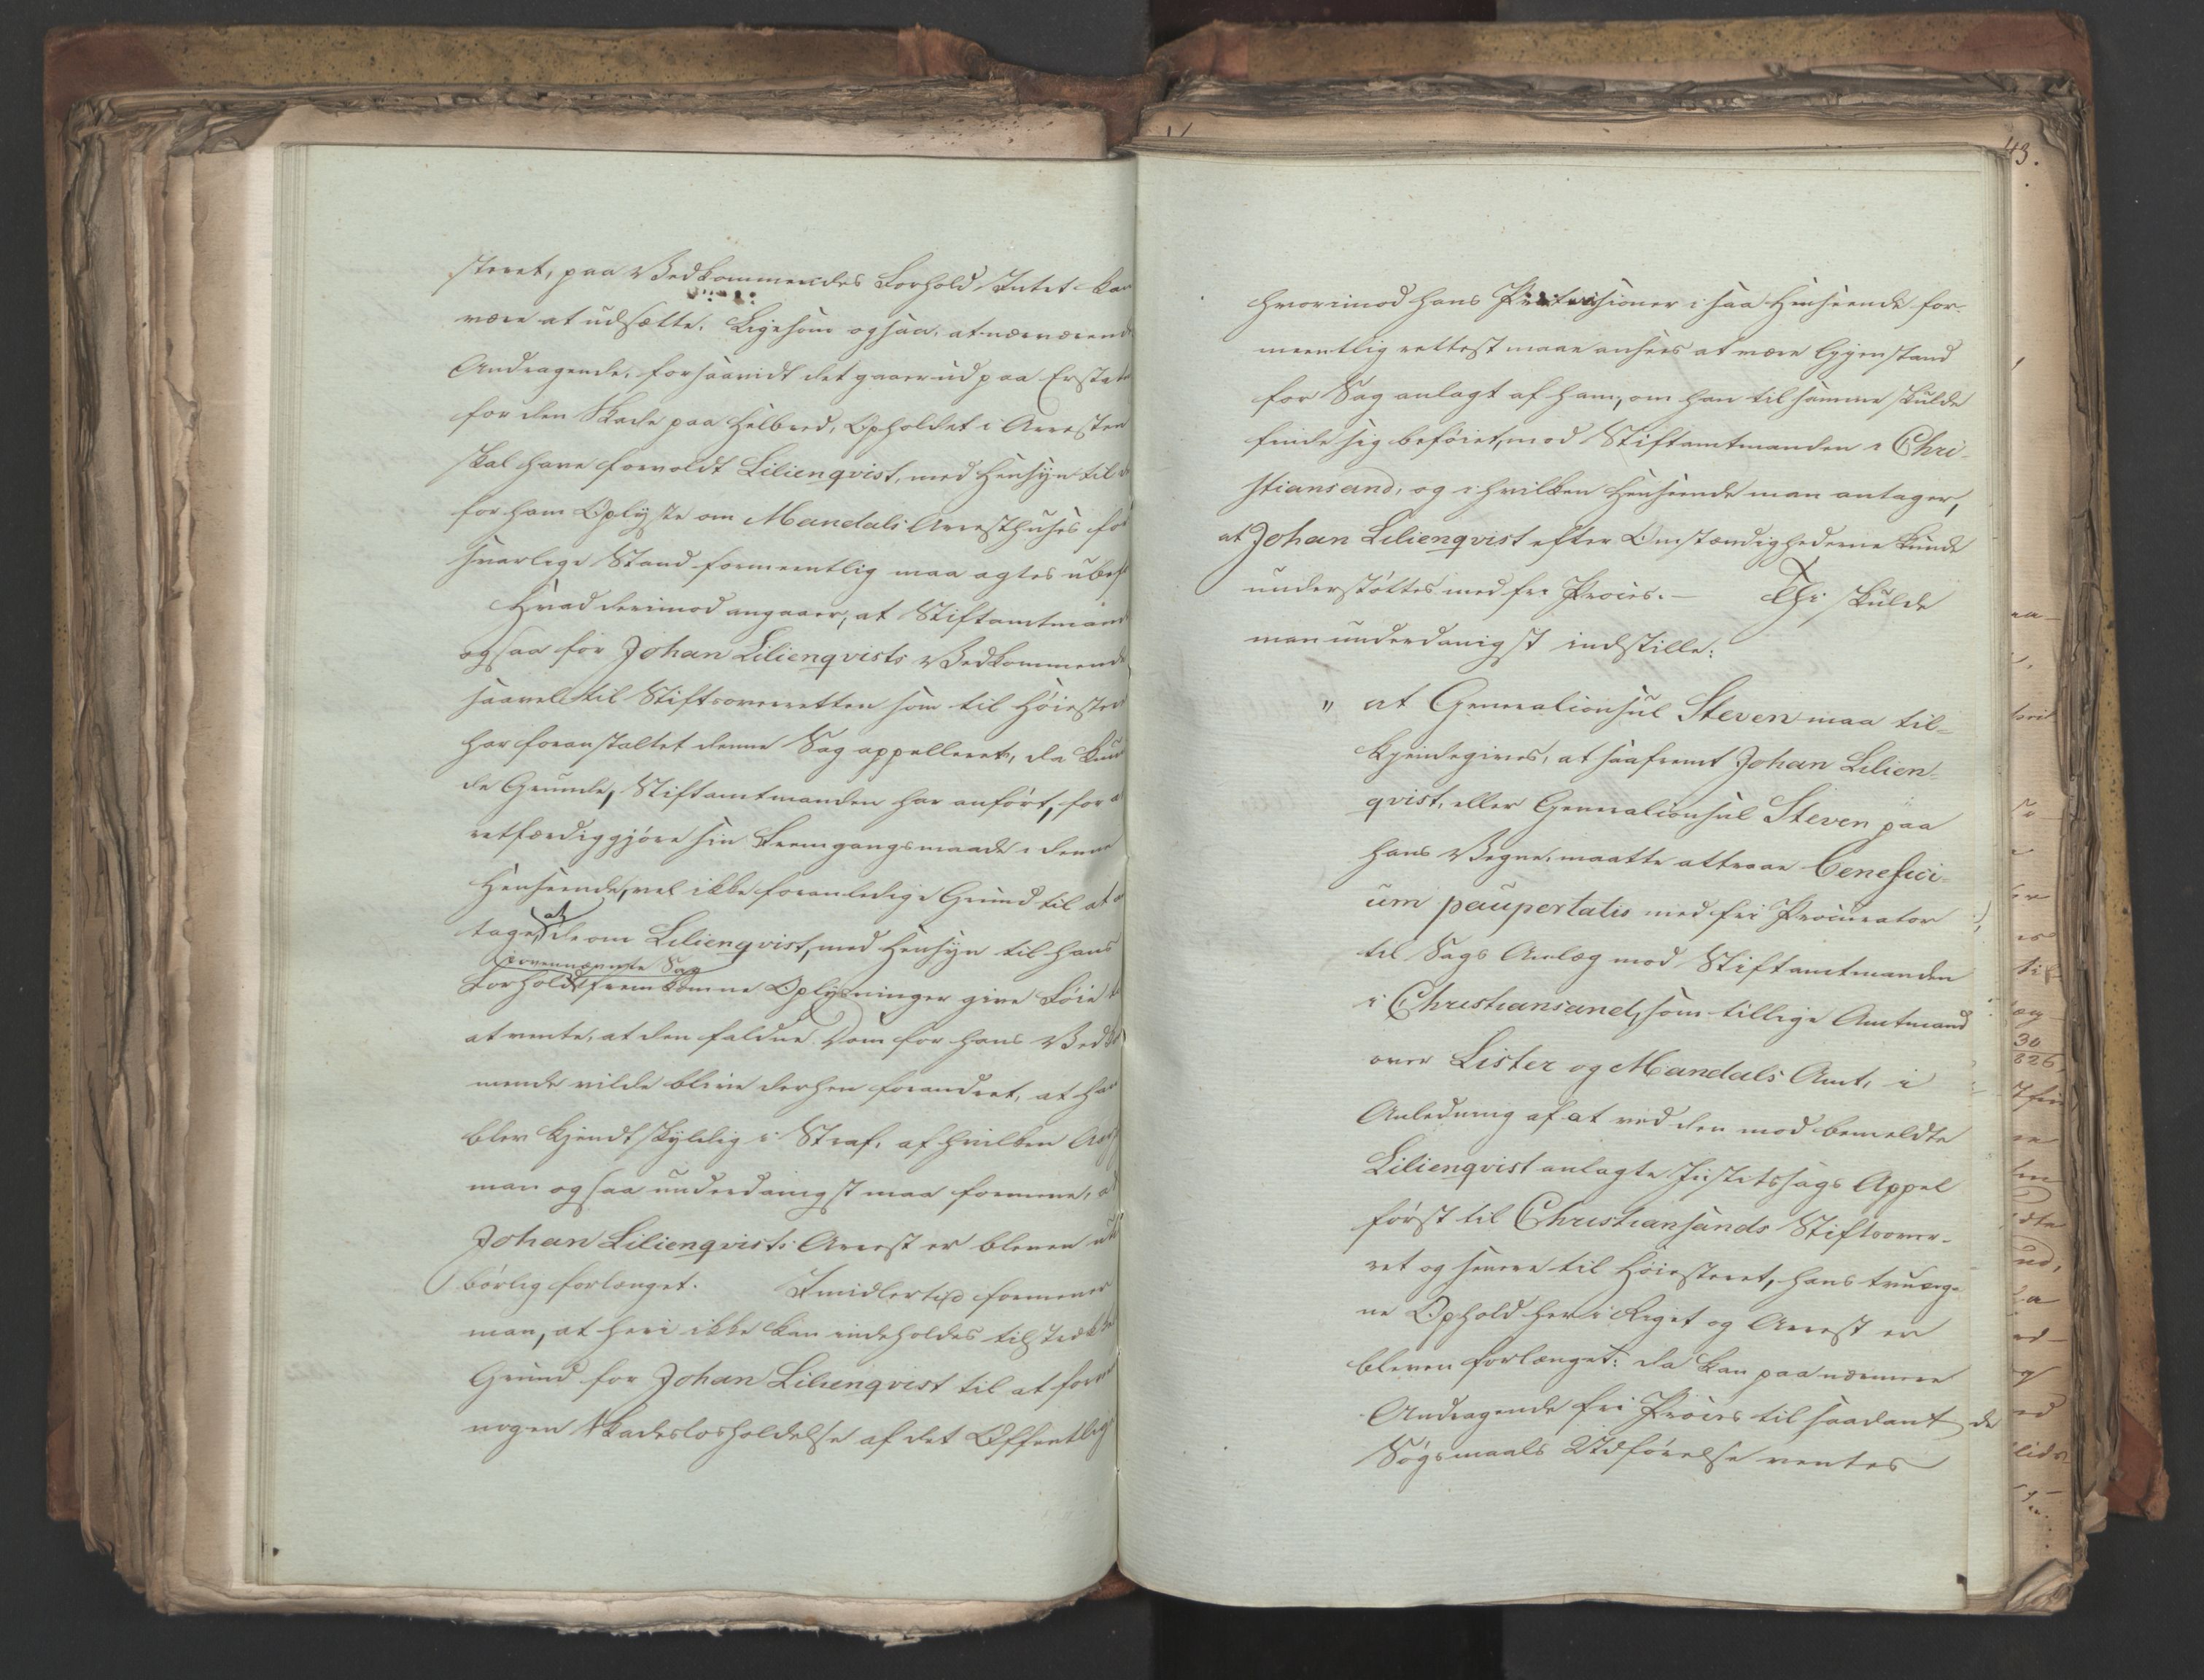 steret, paa Vedkommendes Forhold Intet kan
være at udsætte. Ligesom ogsaa, at nærværende
Andragende, forsaavidt det gaaer ud paa Erstatn
for den Skade paa Helbred, Opholdet i Arresten
skal have forvoldt Lilienqvist, med Hensyn til
for ham Oplyste om Mandals Arresthuses for
svarlige Stand formeentlig maa agtes ubef
Hvad derimod angaaer, at Stiftamtmand
ogsaa for Johan Lilienqvists Vedkommende
saavel til Stiftsoverretten som til Höiester
har foranstaltet denne Sag appelleret, da kun
de Grunde, Stiftamtmanden har anfört, for at
retfærdiggjöre sin Fremgangsmaade i denne
Henseende, vel ikke foranledige Grund til at an
tage, at de om Lilienqvist, med Hensyn til hans
Forhold i ovennævnte Sag fremkomne Oplysninger give Föie til
at vente, at den faldne Dom for hans Vedko
mende vilde blive derhen forandret, at han
blev kjendt skyldig i Straf, af hvilken Aarsa
man ogsaa underdanigst maa formene, at
Johan Lilienqvists Arrest er bleven uti
börlig forlænget. Imidlertid formener
man, at heri ikke kan indeholdes tilstrækkel
Grund for Johan Lilienqvist til at fordre
nogen Skadeslosholdelse af det Offentlige
43.
hvorimod hans Prætensioner i saa Henseende for-
meentlig rettest maae ansees at være Gjenstand
for Sag anlagt af ham, om han til samme skulde
finde sig beföiet, mod Stiftamtmanden i Chri-
stiansand, og i hvilken Henseende man antager,
at Johan Lilienqvist efter Omstændighederne kunde
understöttes med fri Proces. — Thi skulde
man underdanigst indstille:
" at Generalconsul Steven maa til-
kjendegives, at saafremt Johan Lilien-
qvist, eller Generalconsul Steven paa
hans Vegne, maatte attraae benefici-
um paupertatis med fri Procurator
til Sags Anlæg mod Stiftamtmanden
i Christiansand, som tillige Amtmand
over Lister og Mandals Amt, i
Anledning af at ved den mod bemeldte
Lilienqvist anlagte Justitssags Appel
först til Christiansands Stiftsover-
ret og senere til Höiesteret, hans tvung-
ne Ophold her i Riget og Arrest er
bleven forlænget: da kan paa nærmere
Andragende fri Proces til saadant
Sögsmaals Udförelse ventes